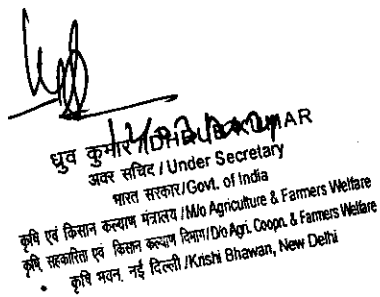 ध्रुव कुमार/DHRUBA KUMAR
अवर सचिव/Under Secretary
भारत सरकार/Govt. of India
कृषि एवं किसान कल्याण मंत्रालय/M/o Agriculture & Farmers Welfare
कृषि, सहकारिता एवं किसान कल्याण विभाग/D/o Agri. Coopn. & Farmers Welfare
कृषि भवन, नई दिल्ली/Krishi Bhawan, New Delhi